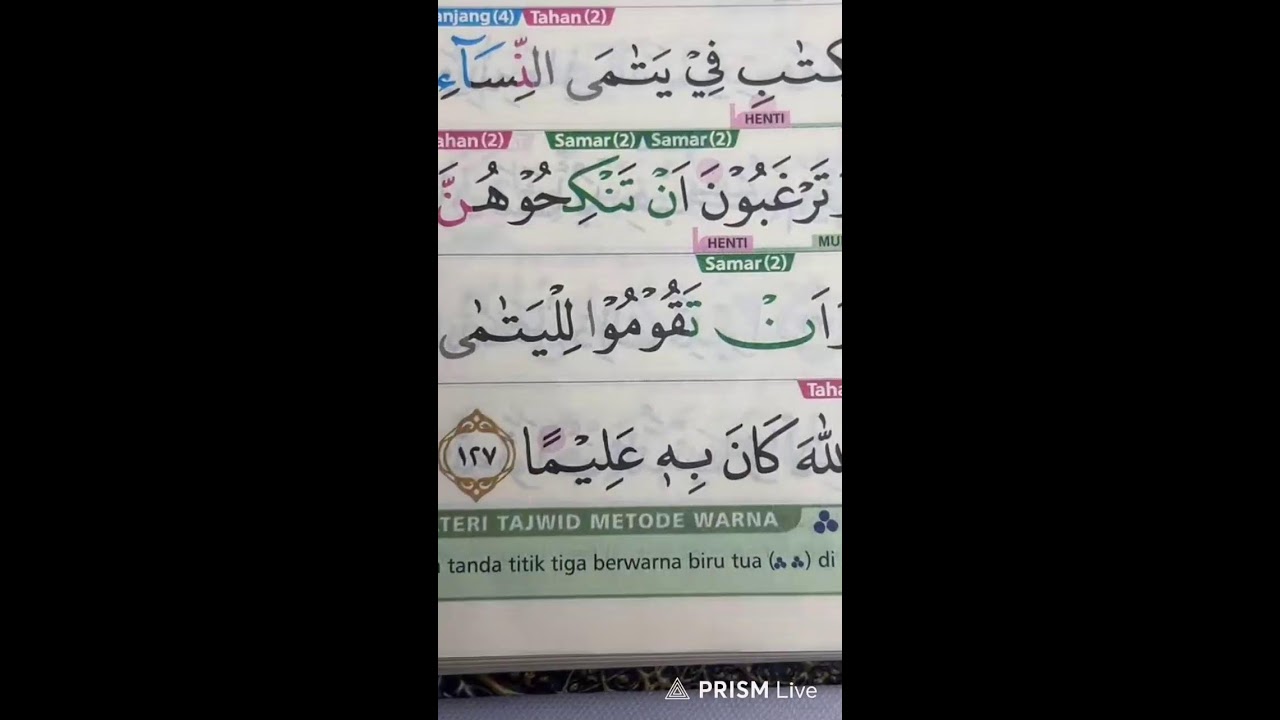 anjang (4) Tahan (2)
كِتٰبِ فِيْ يَتٰمَى النِّسَاۤءِ
HENTI
ahan (2) Samar (2) Samar (2)
تَرْغَبُوْنَ اَنْ تَنْكِحُوْهُنَّ
HENTI MU
Samar (2)
اَنْ تَقُوْمُوْا لِلْيَتٰمٰى
Taha
للّٰهَ كَانَ بِهٖ عَلِيْمًا ١٢٧
TERI TAJWID METODE WARNA
tanda titik tiga berwarna biru tua ( ) di
PRISM Live